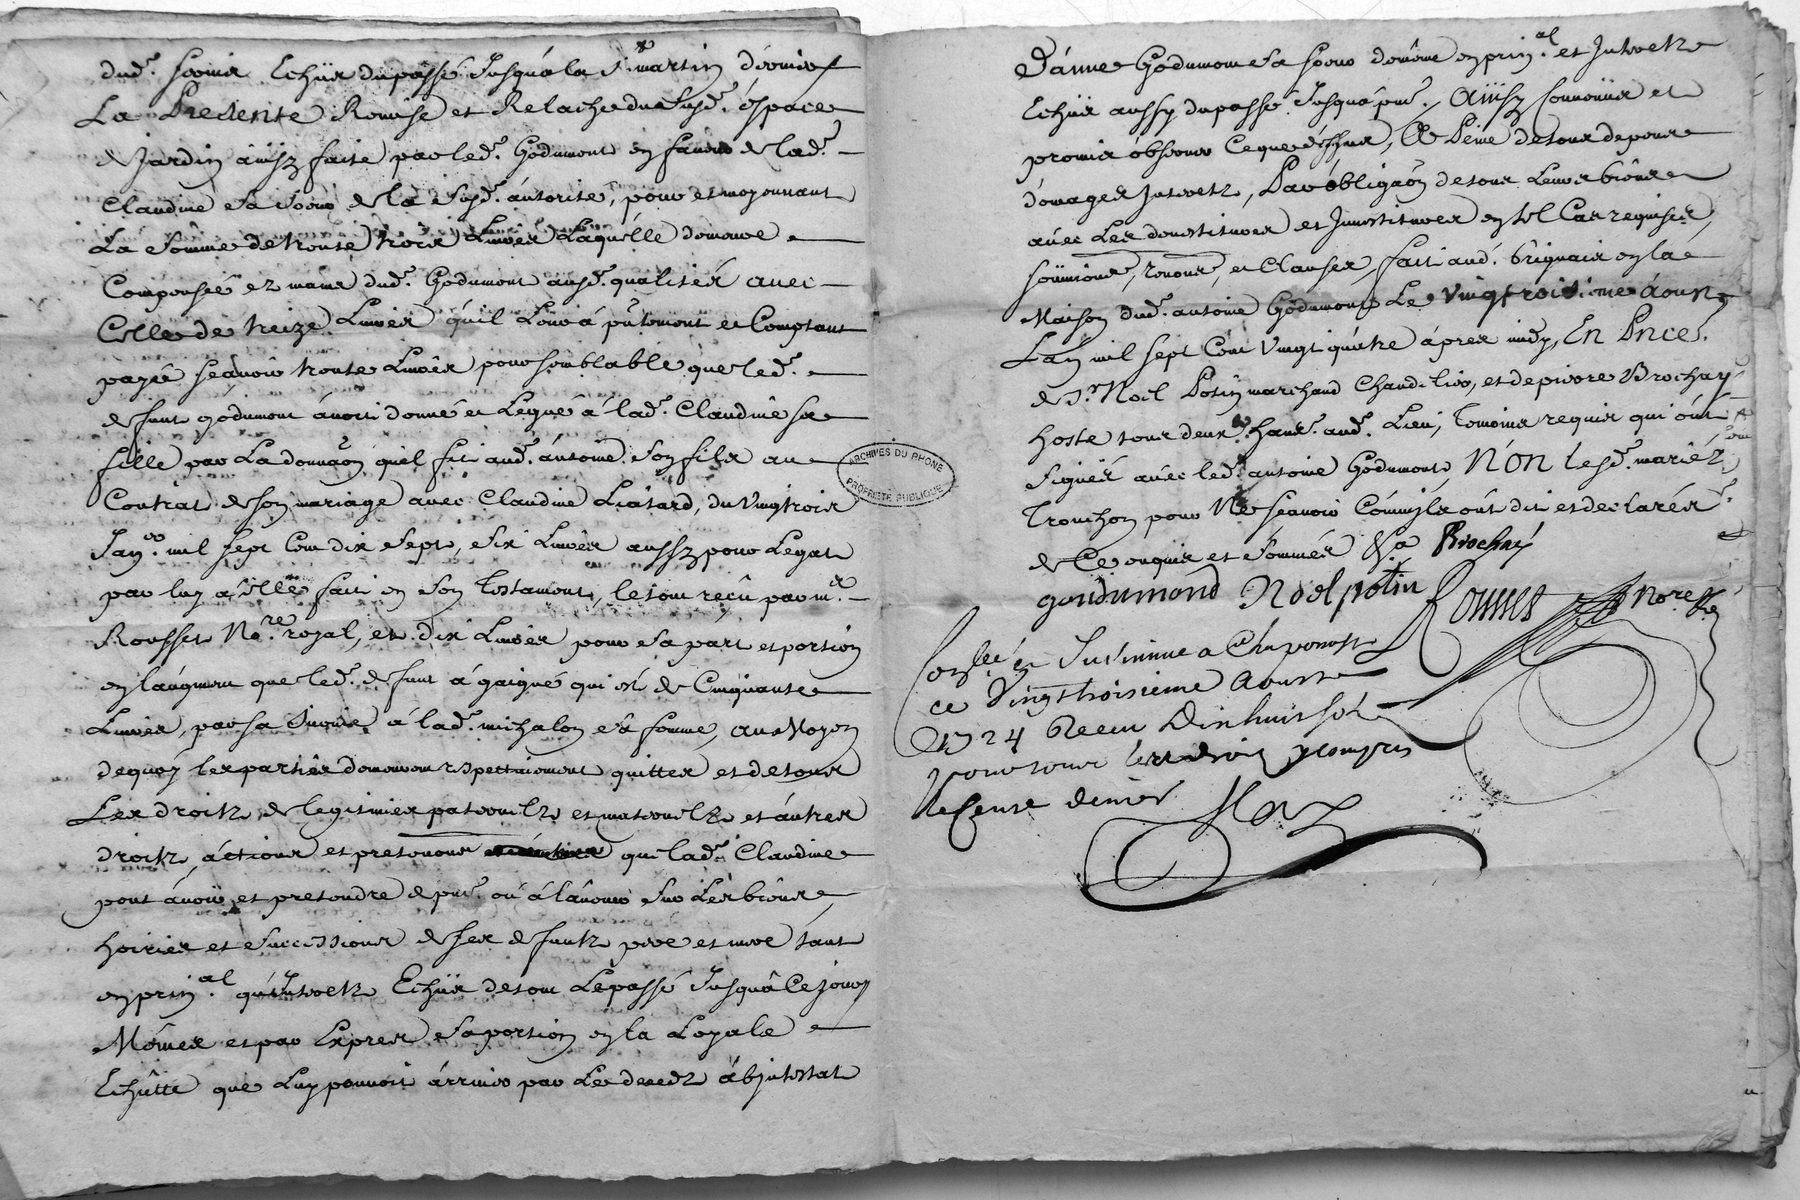 dud. servis Echüs du passé Jusqu'à la St martin dernier
La Presente Remise et Relache du susd. éspace
de Jardin ainsy faite par led. Godumont en faveur de lad.
Claudine sa soeur de la susd. authorité, pour et moyennant
La somme de trente trois Livres Laquelle demeure
Compensée ez mains dud. Godumont ausd. qualités avec
Celle de treize Livres qu'il Leur à pntement et Comptant
payée sçavoir trente Livres pour semblable que led.
defunt godumont avoit donné et Legué à lad. Claudine sa
fille par La donnaon quil fit aud. antoine son fils au
Contrat de son mariage avec Claudine Liatard, du Vingtrois
Janer. mil sept Cent dix sept, six Livres aussy pour Legat
par luy à Elle fait en son testament, le tout reçû par me.
Rousset Nore. royal, et dix Livres pour sa part et portion
en laugment que led. defunt à gaigné qui est de Cinquante
Livres, par sa survie à lad. michalon sa femme, au Moyen
dequoy les parties demeurent respectivement quittes et de tous
Les droits de legitimes paternels et maternels et autres
droits, actions et pretentions que lad. Claudine
peut avoir et pretendre de pnt. ou à lavenir sur Les biens
hoiries et successions de ses defunts pere et mere tant
en prinal. qu'Interets Echüs de tout Le passé Jusqu'à Ce jour
Mêmes et par Exprès sa portion en la Loyale
Echûtte que Luy pouvoit arriver par Le deceds abjntestat
D'anne Godumont sa soeur de même en prinal. et Interets
Echüs aussy du passé Jusqu'à pnt. Ainsy Convenus et
promis observer Ce que dessus, A Peine de tous depens
domages Interets, Par obligaon de tous Leurs biens
avec Les constitutions et Jnvestitures en tel Cas requises,
soumions, renons, et Clauses, fait aud. brignais en la
Maison dud. antoine Godumont Le vingtroisieme àoust
Lan mil sept Cent Vingt quatre après midy, En Pnce.
de Sr. Noel Potin marchand Chandelier, et de pierre Brochay
hoste tous deux hants. aud. Lieu, temoins requis qui ont
signés avec led. antoine Godumont, NON lesd. mariés
Tronchon pour Ne sçavoir Comm'ils ont dit et declarés
de Ce enquis et sommés &a Brochay
goudumond Noel potin Rousset nore
Conllé et Insinué a Chaponost
ce Vingt troisieme Aoust
1724 Receu Dixhuit sols
pour tous les droits y compris
le cense denier